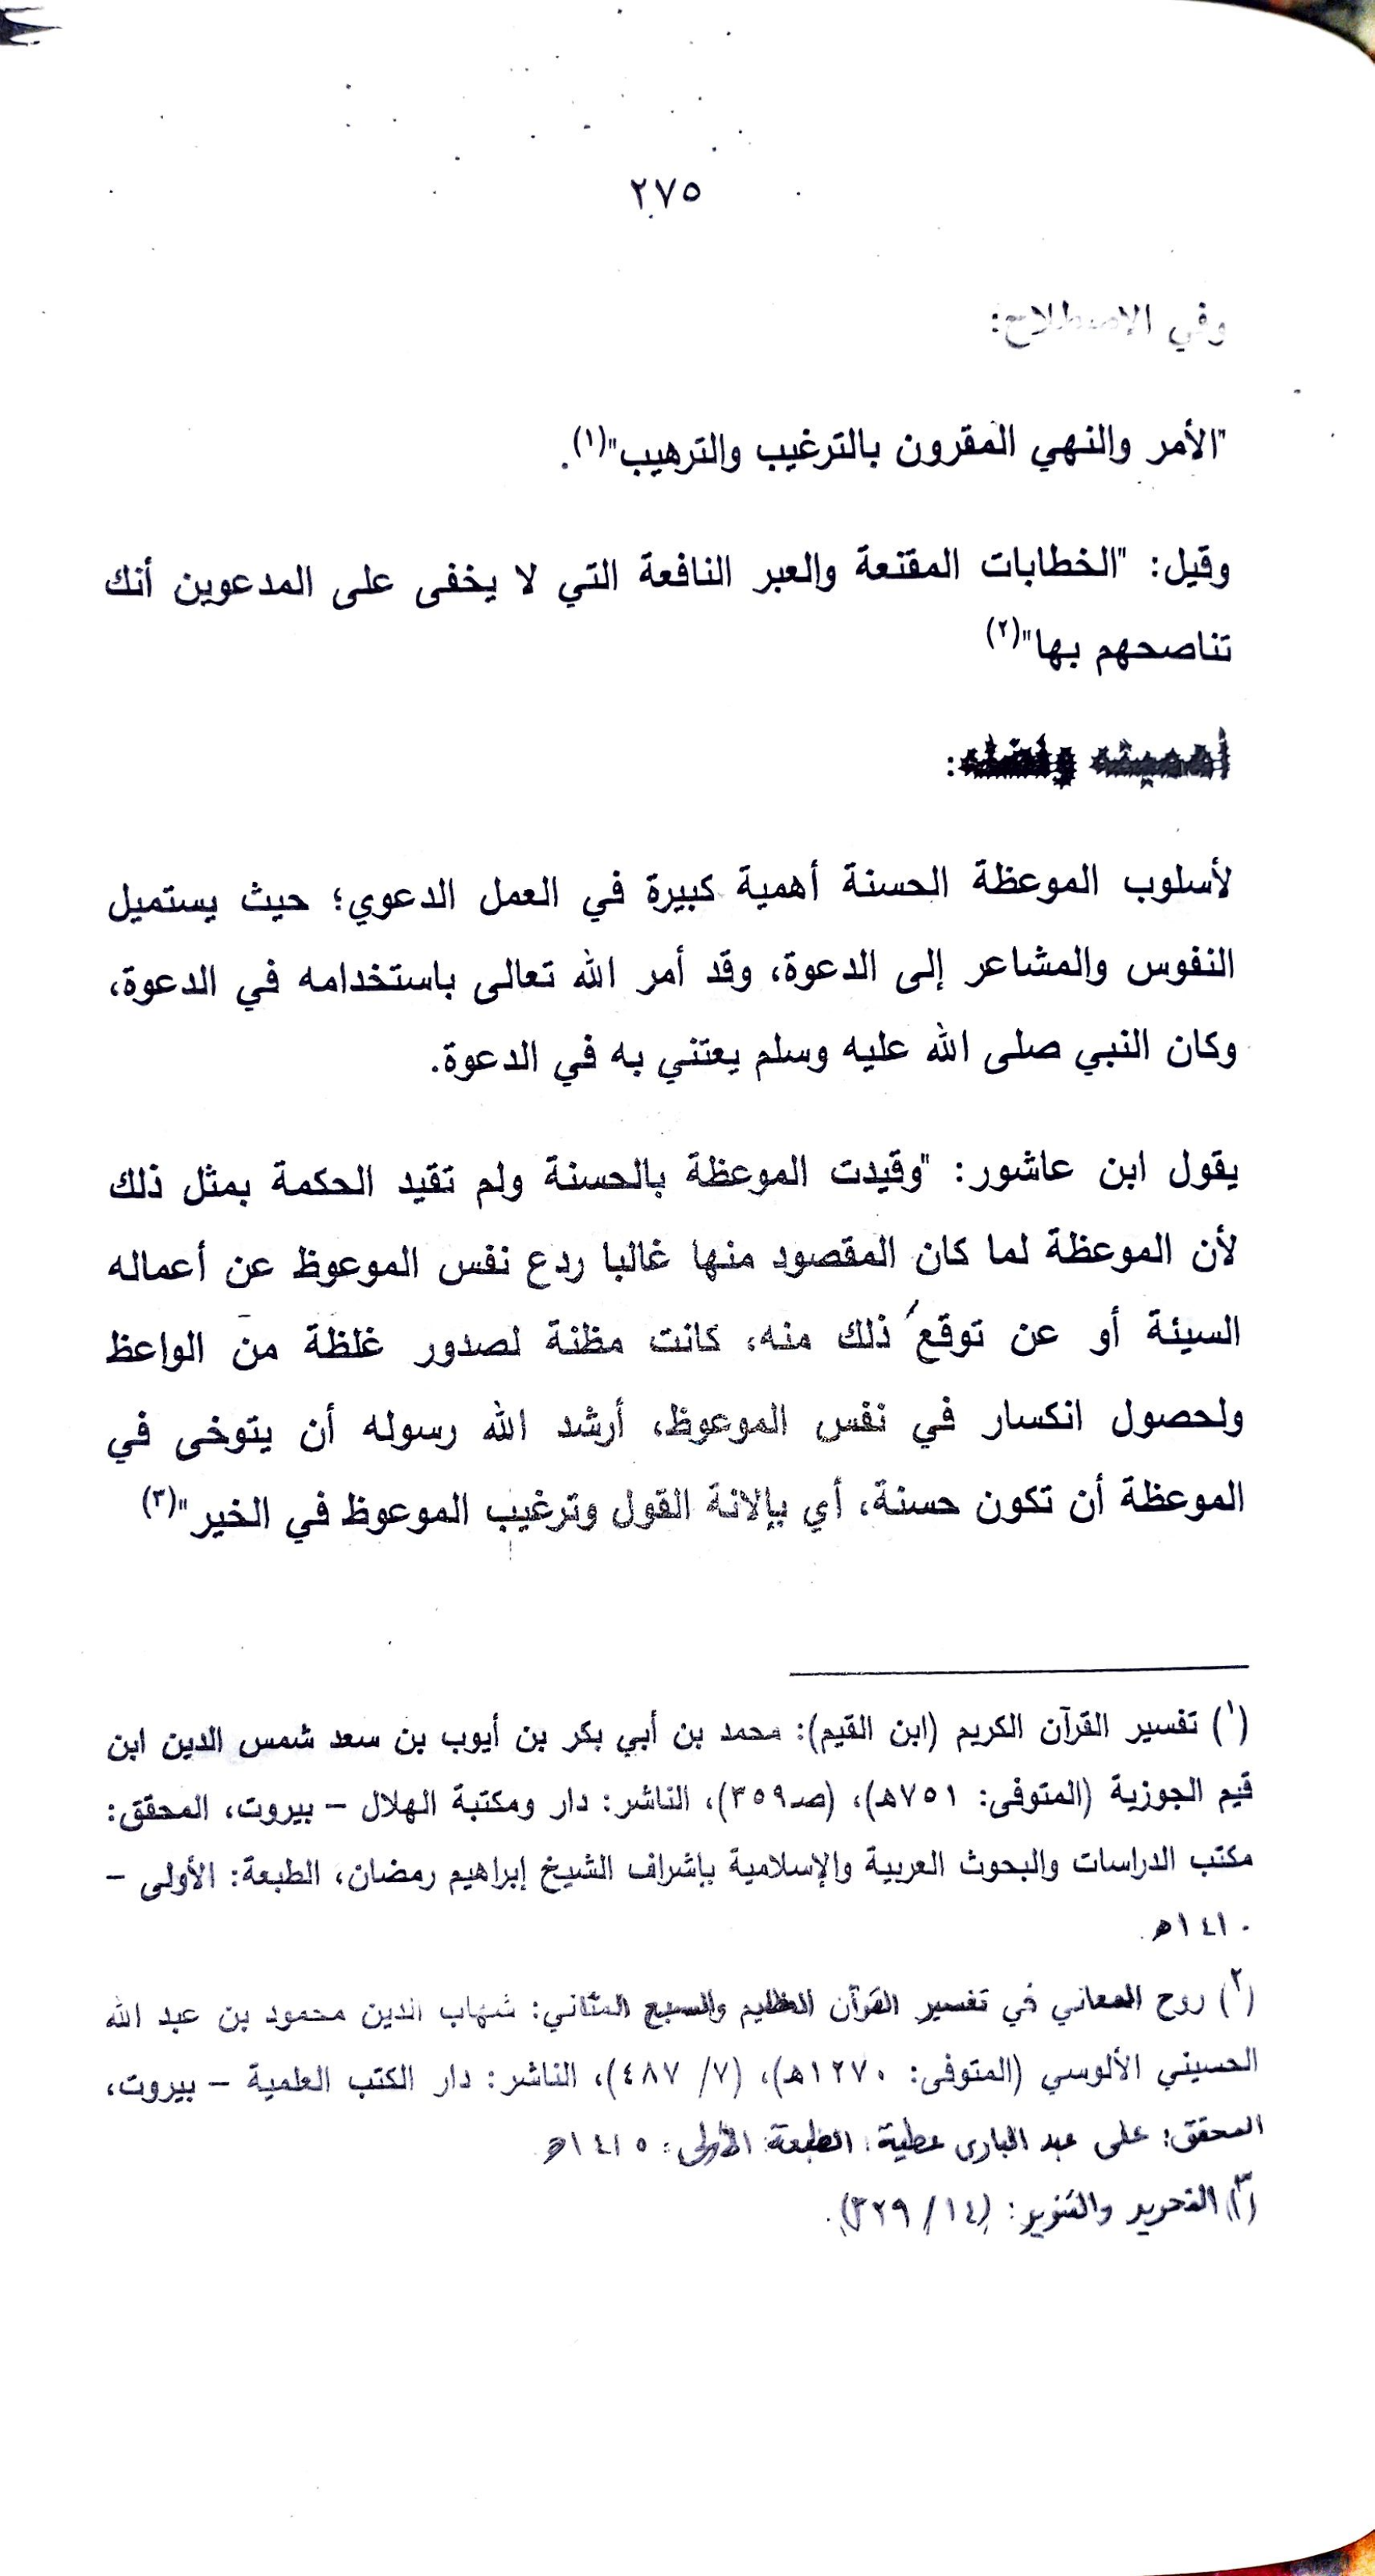 ٢٧٥
وفي الإصطلاح:
"الأمر والنهي المقرون بالترغيب والترهيب"(١).
وقيل: "الخطابات المقنعة والعبر النافعة التي لا يخفى على المدعوين أنك
تناصحهم بها"(٢)
أهميته وفضله:
لأسلوب الموعظة الحسنة أهمية كبيرة في العمل الدعوي؛ حيث يستميل
النفوس والمشاعر إلى الدعوة، وقد أمر الله تعالى باستخدامه في الدعوة،
وكان النبي صلى الله عليه وسلم يعتني به في الدعوة.
يقول ابن عاشور: "وقيدت الموعظة بالحسنة ولم تقيد الحكمة بمثل ذلك
لأن الموعظة لما كان المقصود منها غالبا ردع نفس الموعوظ عن أعماله
السيئة أو عن توقع ذلك منه، كانت مظنة لصدور غلظة من الواعظ
ولحصول انكسار في نفس الموعوظ، أرشد الله رسوله أن يتوخى في
الموعظة أن تكون حسنة، أي بإلانة القول وترغيب الموعوظ في الخير"(٣)
(١) تفسير القرآن الكريم (ابن القيم): محمد بن أبي بكر بن أيوب بن سعد شمس الدين ابن
قيم الجوزية (المتوفى: ٧٥١هـ)، (صـ٣٥٩)، الناشر: دار ومكتبة الهلال – بيروت، المحقق:
مكتب الدراسات والبحوث العربية والإسلامية بإشراف الشيخ إبراهيم رمضان، الطبعة: الأولى –
١٤١٠هـ.
(٢) روح المعاني في تفسير القرآن العظيم والسبع المثاني: شهاب الدين محمود بن عبد الله
الحسيني الألوسي (المتوفى: ١٢٧٠هـ)، (٧/ ٤٨٧)، الناشر: دار الكتب العلمية – بيروت،
المحقق: على عبد البارى عطية، الطبعة: الأولى، ١٤١٥هـ
(٣) التحرير والتنوير: (١٤/ ٣٢٩).